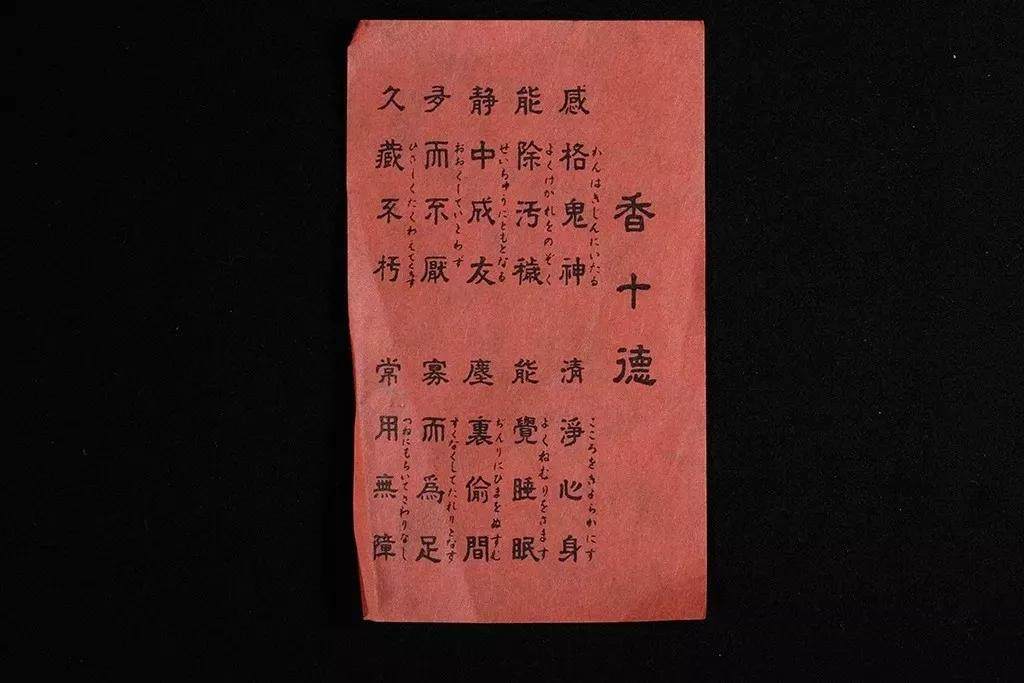 香十德
感格鬼神
かんはきじんにいたる
清淨心身
こころをきよらかにす
能除汚穢
よくけがれをのぞく
能覺睡眠
よくねむりをさます
静中成友
せいちゆうにともとなる
塵裏偷間
ぢんりにひまをぬすむ
多而不厭
おおくしていとわず
寡而爲足
すくなくしてたれりとなす
久藏不朽
ひさしくたくわえてくちず
常用無障
つねにもちいてさわりなし